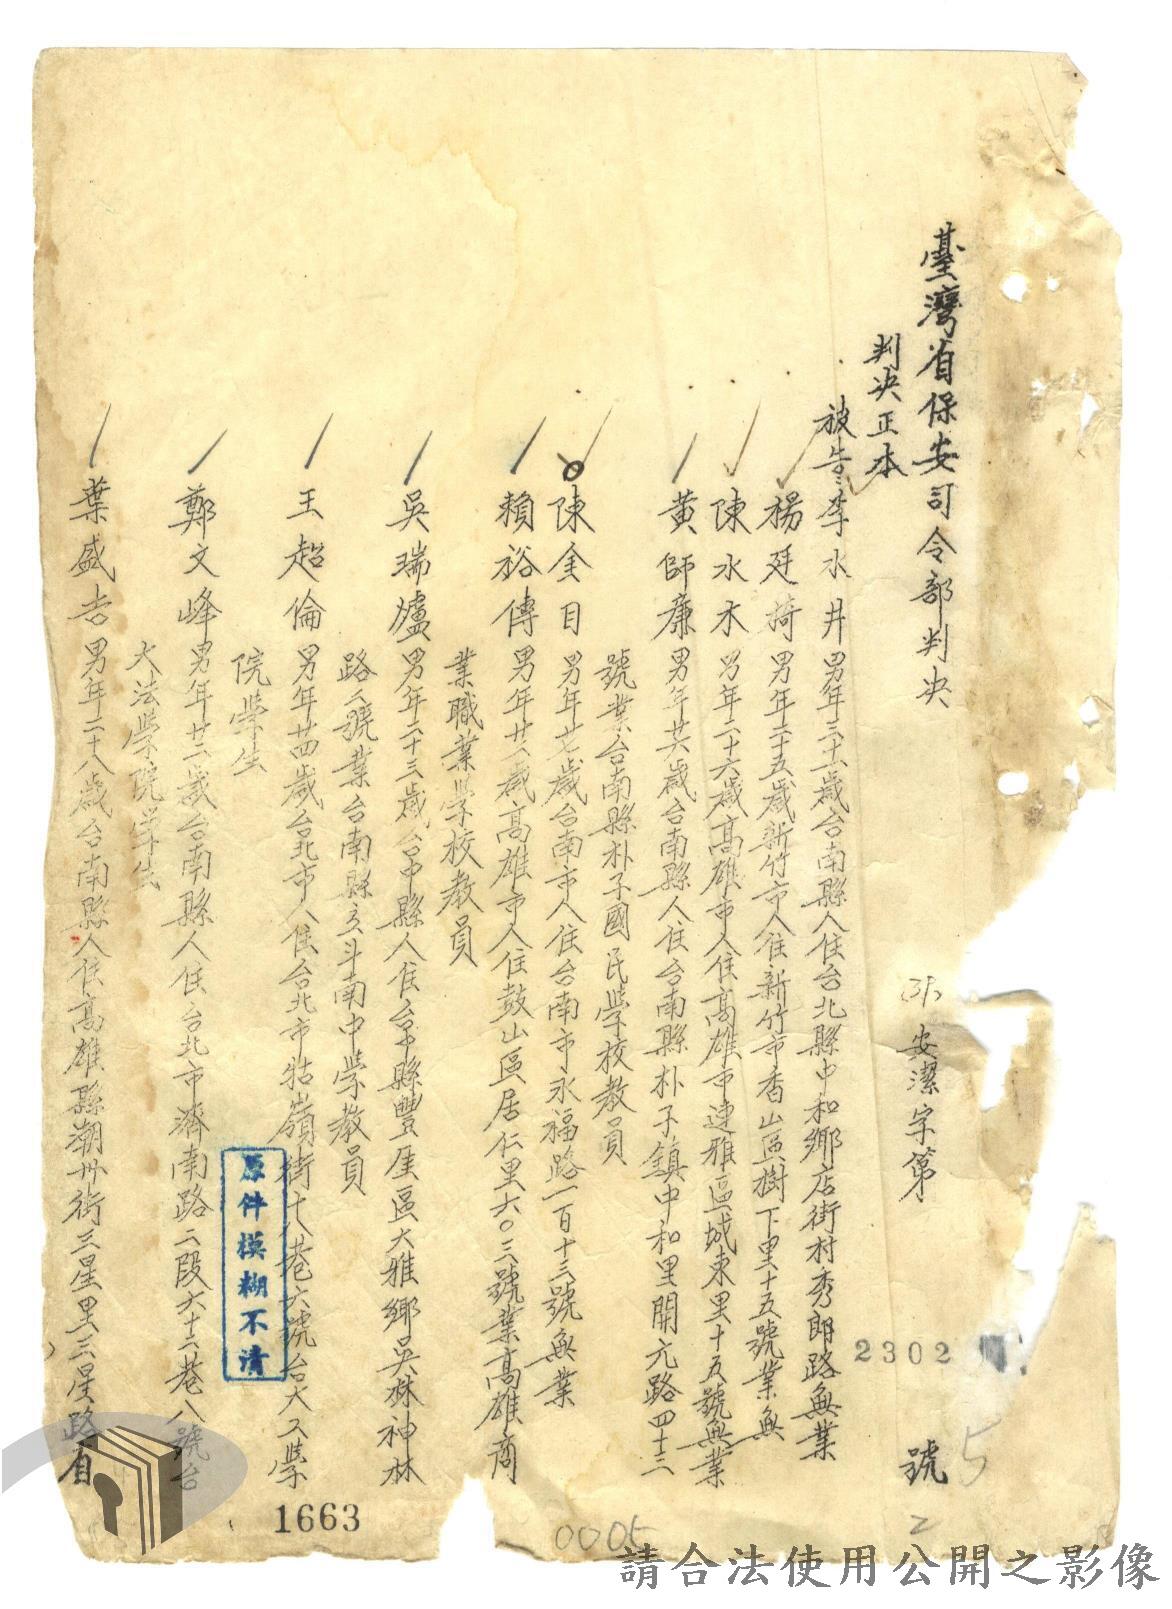 臺灣省保安司令部判决
安潔字第
號
2302
5
2
判决正本
被告李水井男年三十一歲台南縣人住台北縣中和鄉店街村秀朗路無業
楊廷椅男年二十五歲新竹市人住新竹市香山區樹下里十五號業無
陳水木男年二十六歲高雄市人住高雄市連雅區城東里十五號無業
黃師廉男年廿六歲台南縣人住台南縣朴子鎮中和里開元路四十三
號業台南縣朴子國民學校教員
陳金目男年廿七歲台南市人住台南市永福路一百十三號無業
賴裕傳男年廿六歲高雄市人住鼓山區居仁里六〇三號業高雄商
業職業學校教員
吳瑞爐男年二十三歲台中縣人住台中縣豐原區大雅鄉吳林神林
路 號業台南縣 斗南中學教員
王超倫男年廿四歲台北市人住台北市牯嶺街十八巷六號台大工學
院學生
鄭文峰男年廿二歲台南縣人住台北市濟南路二段六十六巷八號台
大法學院學生
葉盛吉男年二十八歲台南縣人住高雄縣潮州街三星里三星路省
原件模糊不清
1663
0005
請合法使用公開之影像